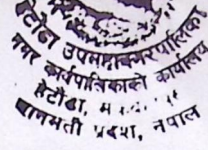 हेटौंडा उपमहानगरपालिका
नगर कार्यपालिकाको कार्यालय
हेटौंडा, म
बागमती प्रदेश, नेपाल